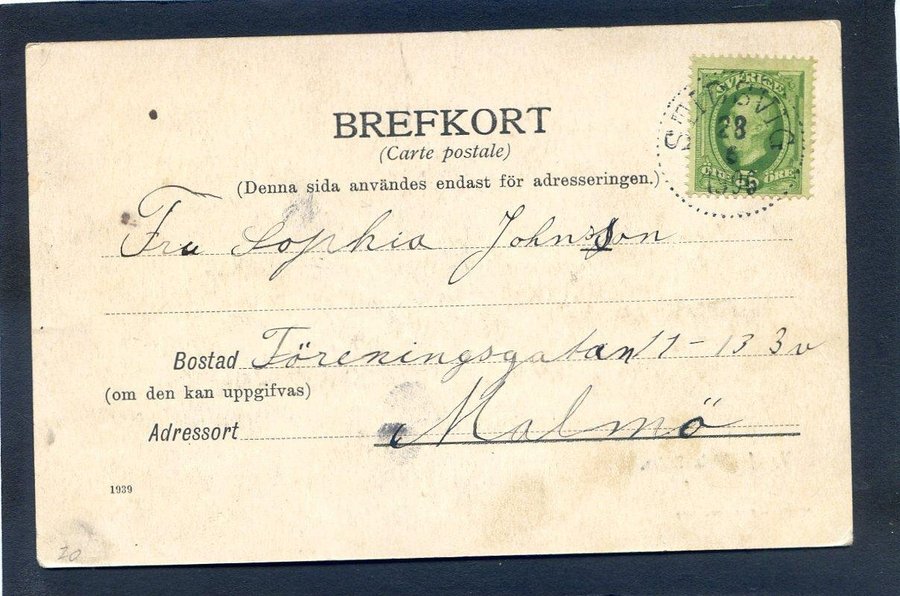 BREFKORT
(Carte postale)
(Denna sida användes endast för adresseringen.)
SVERIGE
28
6
ÖRE
Fru Sophia Johnsson
Bostad Föreningsgatan 17-13 3 v
(om den kan uppgifvas)
Adressort Malmö
1939
20